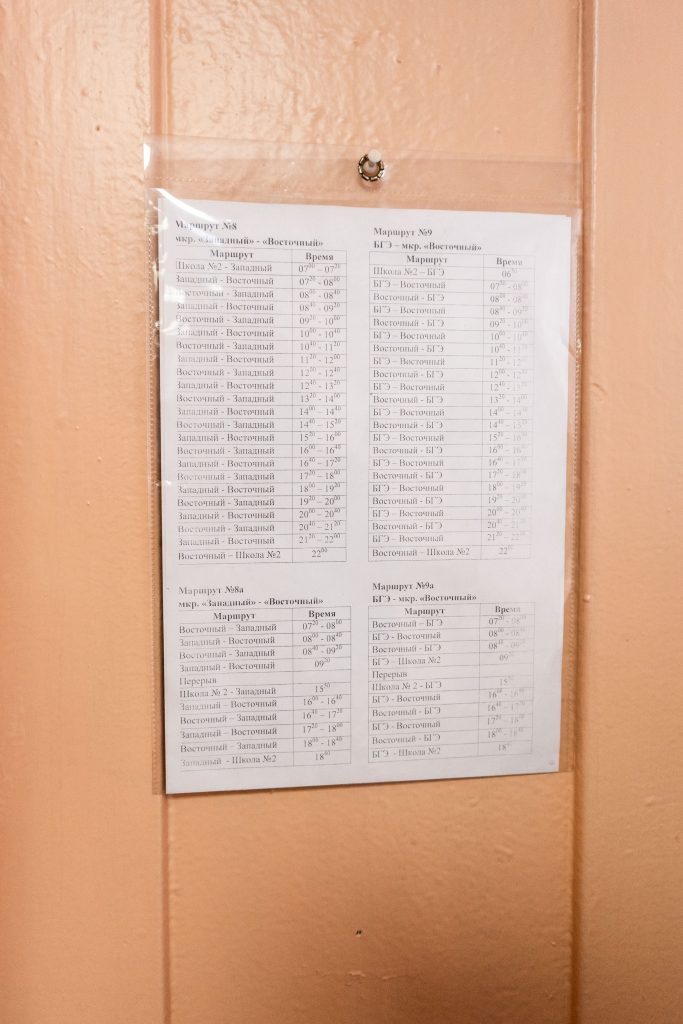 Маршрут №8
мкр. «Западный» - «Восточный»
Маршрут Время
Школа №2 - Западный 07⁰⁰ – 07²⁰
Западный - Восточный 07²⁰ - 08⁰⁰
Восточный - Западный 08⁰⁰ - 08⁴⁰
Западный - Восточный 08⁴⁰ – 09²⁰
Восточный - Западный 09²⁰ – 10⁰⁰
Западный - Восточный 10⁰⁰ – 10⁴⁰
Восточный - Западный 10⁴⁰ – 11²⁰
Западный - Восточный 11²⁰ – 12⁰⁰
Восточный - Западный 12⁰⁰ - 12⁴⁰
Западный - Восточный 12⁴⁰ - 13²⁰
Восточный - Западный 13²⁰ - 14⁰⁰
Западный - Восточный 14⁰⁰ – 14⁴⁰
Восточный - Западный 14⁴⁰ – 15²⁰
Западный - Восточный 15²⁰ – 16⁰⁰
Восточный - Западный 16⁰⁰ – 16⁴⁰
Западный - Восточный 16⁴⁰ – 17²⁰
Восточный - Западный 17²⁰ – 18⁰⁰
Западный - Восточный 18⁰⁰ – 19²⁰
Восточный - Западный 19²⁰ – 20⁰⁰
Западный - Восточный 20⁰⁰ – 20⁴⁰
Восточный - Западный 20⁴⁰ – 21²⁰
Западный - Восточный 21²⁰ – 22⁰⁰
Восточный – Школа №2 22⁰⁰
Маршрут №9
БГЭ – мкр. «Восточный»
Маршрут Время
Школа №2 – БГЭ
БГЭ – Восточный 07²⁰ - 08⁰⁰
Восточный - БГЭ 08⁰⁰ - 08⁴⁰
БГЭ – Восточный 08⁴⁰ – 09²⁰
Восточный - БГЭ 09²⁰ – 10⁰⁰
БГЭ – Восточный 10⁰⁰ – 10⁴⁰
Восточный - БГЭ 10⁴⁰ – 11²⁰
БГЭ – Восточный 11²⁰ – 12⁰⁰
Восточный - БГЭ 12⁰⁰ – 12⁴⁰
БГЭ – Восточный 12⁴⁰ - 13²⁰
Восточный - БГЭ 13²⁰ - 14⁰⁰
БГЭ – Восточный 14⁰⁰ – 14⁴⁰
Восточный - БГЭ 14⁴⁰ – 15²⁰
БГЭ – Восточный 15²⁰ – 16⁰⁰
Восточный - БГЭ 16⁰⁰ – 16⁴⁰
БГЭ – Восточный 16⁴⁰ – 17²⁰
Восточный - БГЭ 17²⁰ – 18⁰⁰
БГЭ – Восточный 18⁰⁰ – 19²⁰
Восточный - БГЭ 19²⁰ – 20⁰⁰
БГЭ – Восточный 20⁰⁰ – 20⁴⁰
Восточный - БГЭ 20⁴⁰ – 21²⁰
БГЭ – Восточный 21²⁰ – 22⁰⁰
Восточный – Школа №2
Маршрут №8а
мкр. «Западный» - «Восточный»
Маршрут Время
Восточный – Западный 07²⁰ - 08⁰⁰
Западный - Восточный 08⁰⁰ - 08⁴⁰
Восточный – Западный 08⁴⁰ - 09²⁰
Западный - Восточный 09²⁰
Перерыв
Школа № 2 - Западный 15⁵⁰
Западный - Восточный 16⁰⁰ - 16⁴⁰
Восточный - Западный 16⁴⁰ – 17²⁰
Западный - Восточный 17²⁰ – 18⁰⁰
Восточный - Западный 18⁰⁰ - 18⁴⁰
Западный - Школа №2 18⁴⁰
Маршрут №9а
БГЭ - мкр. «Восточный»
Маршрут Время
Восточный – БГЭ 07²⁰ - 08⁰⁰
БГЭ - Восточный 08⁰⁰ - 08⁴⁰
Восточный – БГЭ 08⁴⁰ - 09²⁰
БГЭ – Школа №2 09²⁰
Перерыв
Школа № 2 - БГЭ 15⁵⁰
БГЭ - Восточный 16⁰⁰ - 16⁴⁰
Восточный - БГЭ 16⁴⁰ - 17²⁰
БГЭ - Восточный 17²⁰ – 18⁰⁰
Восточный - БГЭ 18⁰⁰ - 18⁴⁰
БГЭ - Школа №2 18⁴⁰